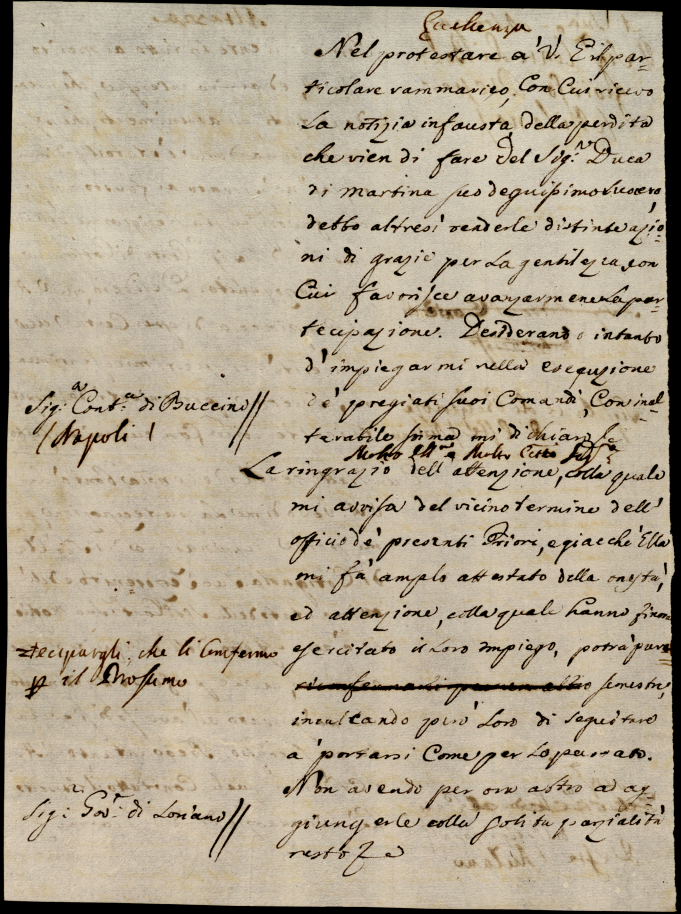 Eccellenza
Nel protestare a' V. E. il par-
ticolare rammarico, Con Cui ricevo
La notizia infausta, della perdita
che vien di fare del Sig.r Duca
di Martina suo degnissimo Suocero,
debbo altresì renderle distinte azio-
ni di grazie per La gentilezza, con
Cui favorisce avanzarmene La par-
tecipazione. Desiderando intanto
d' impiegarmi nella esecuzione
de' pregiati suoi Comandi, Con inal-
terabile stima mi dichiaro
Sig.a Cont.a di Buccino //
( Napoli )
Molto Ill.re e Molto Ecc.te Sig.re
La ringrazio dell' attenzione, colla quale
mi avvisa del vicino termine dell'
officio de' presenti Priori, e giacchè Ella
mi fà amplo attestato della onestà,
ed attenzione, colla quale hanno finora
esercitato il Loro impiego, potrà pure
tecipargli, che li Confermo
p il Prossimo
riconfermarli per un altro semestre,
inculcando però Loro di seguitare
a' portarsi Come per Lo passato.
Non avendo per ora altro ad ag-
giungerle colla solita parzialità
resto
Sig.r Gov.re di Loriano //